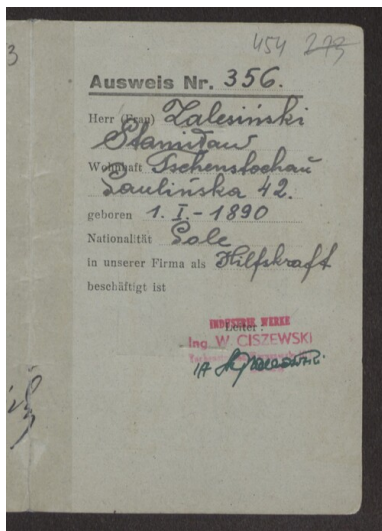 3
454 273
Ausweis Nr. 356.
Herr (Frau) Zalesiński
Stanisław
Wohnhaft Tschenstochau
Paulińska 42.
geboren 1. I. - 1890
Nationalität Pole
in unserer Firma als Hilfskraft
beschäftigt ist
Leiter:
INDUSTRIE WERKE
Ing. W. CISZEWSKI